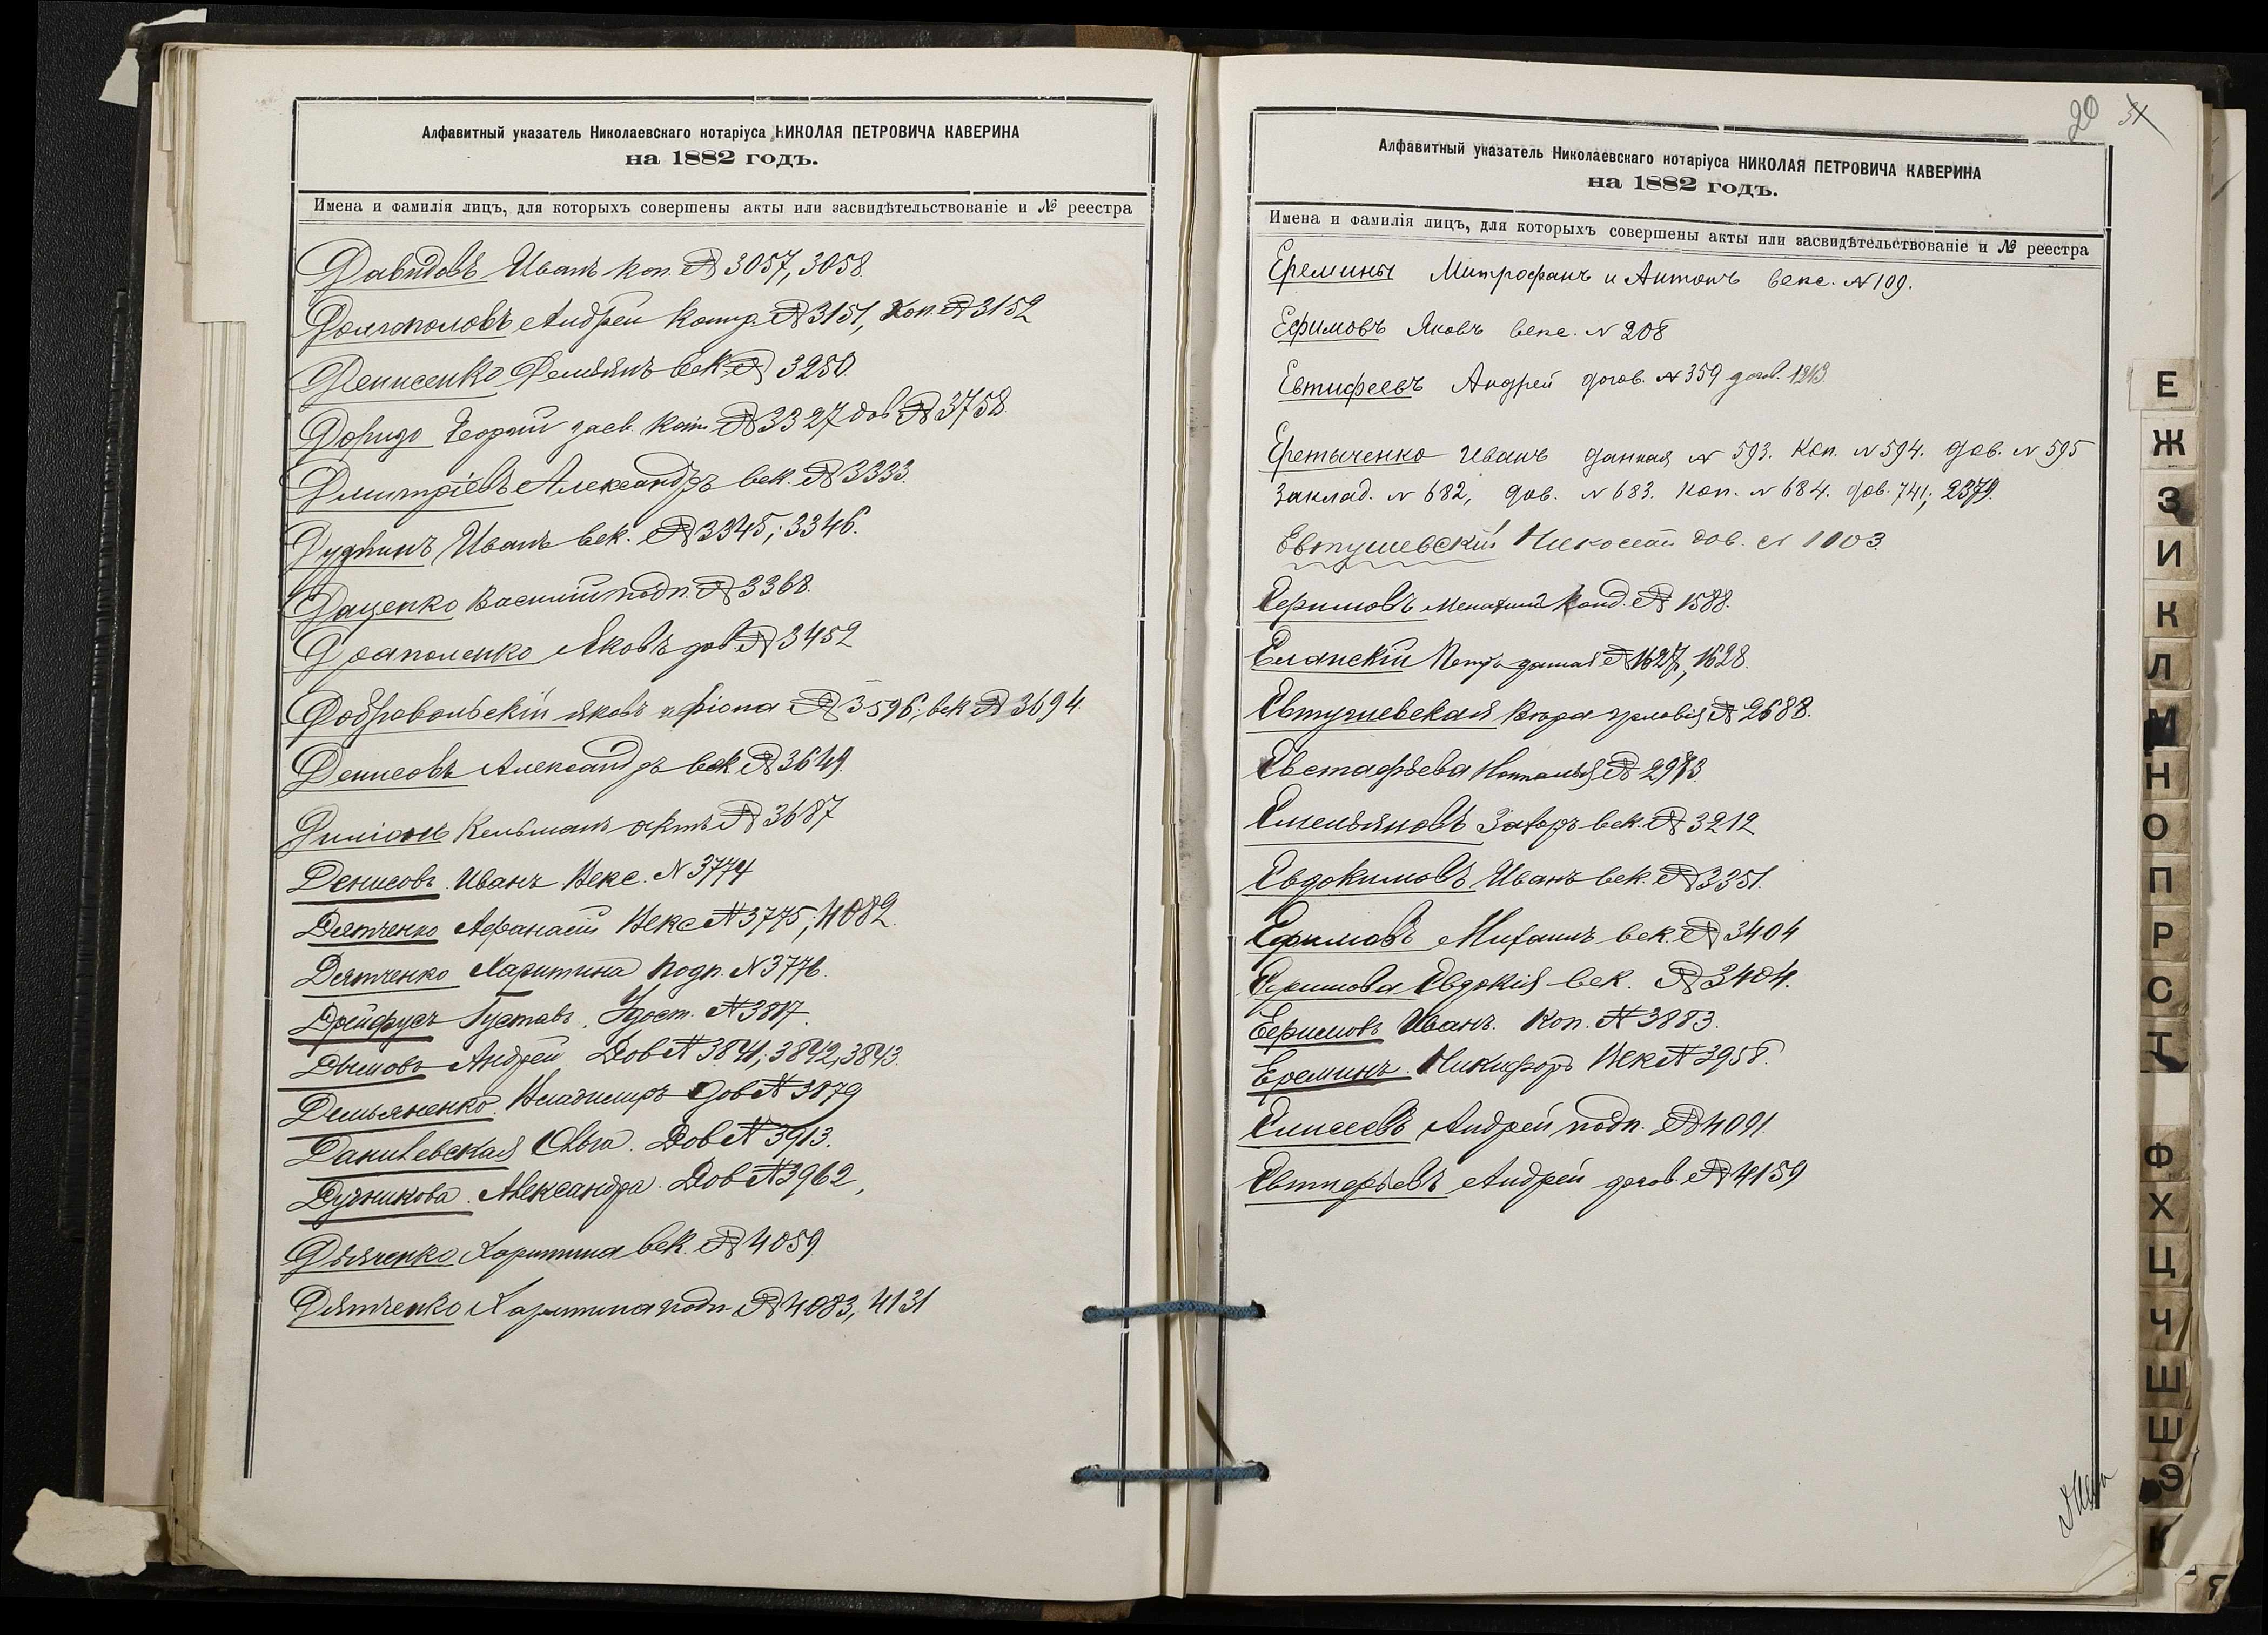 Алфавитный указатель Николаевскаго нотаріуса НИКОЛАЯ ПЕТРОВИЧА КАВЕРИНА
на 1882 годъ.
Имена и фамилія лицъ, для которыхъ совершены акты или засвидѣтельствованіе и № реестра
Давидовъ Иванъ коп. № 3057, 3058
Долгополовъ Андрей контр. № 3151, Коп. № 3152
Денисенко Демьянъ век. № 3250
Георгій засв. коп. № 3327 дов. № 3758.
Дмитріевъ Александръ век. № 3333.
Иванъ век. № 3345; 3346.
Даценко Василий подп. № 3368.
Яковъ дов. № 3452
Добровольскій Яковъ № 3596, век № 3694
Денисовъ Александръ век № 3649.
Кельманъ актъ № 3687
Денисовъ Иванъ Векс. N 3774
Дятченко Афанасій Векс № 3775; 4082.
Дятченко Харитина подп. N 3776.
Дрейфусъ Густавъ. Удост. № 3817.
Дымовъ Андрей Дов № 3841; 3842, 3843.
Демьяненко. Владимиръ Дов № 3879
Данилевская Ольга. Дов № 3913.
Александра. Дов № 3962,
Дьяченко Харитина век. № 4059.
Дятченко Харитина подп № 4083, 4131
20
Алфавитный указатель Николаевскаго нотаріуса НИКОЛАЯ ПЕТРОВИЧА КАВЕРИНА
на 1882 годъ.
Имена и фамилія лицъ, для которыхъ совершены акты или засвидѣтельствованіе и № реестра
Еремины Митрофанъ и Антонъ векс. № 109.
Ефимовъ Яковъ векс. № 208
Евтифеевъ Андрей догов. № 359 догов. 1213.
Еретыченко Иванъ данная № 593. Коп. № 594. дов. № 595
Заклад. № 682, дов. № 683. коп. № 684. дов. 741; 2379.
Евтушевскій Николай дов. № 1003.
Ефимовъ № 1588.
Еланскій Петръ данная № 1627, 1628.
Евтушевская Вѣра условія № 2688.
Евстафьева Наталья № 2973.
Емельяновъ век. № 3212
Евдокимовъ Иванъ век. № 3351.
Ефимовъ Михаилъ век. № 3404
Ефимова Евдокія век. № 3404.
Ефимовъ Иванъ. Коп. № 3883.
Ереминъ. Никифоръ Век № 3958.
Елисеевъ Андрей подп. № 4091.
Евтифьевъ Андрей догов. № 4159
Е
Ж
З
И
К
Л
М
Н
О
П
Р
С
Т
Ф
Х
Ц
Ч
Ш
Щ
Э
Я